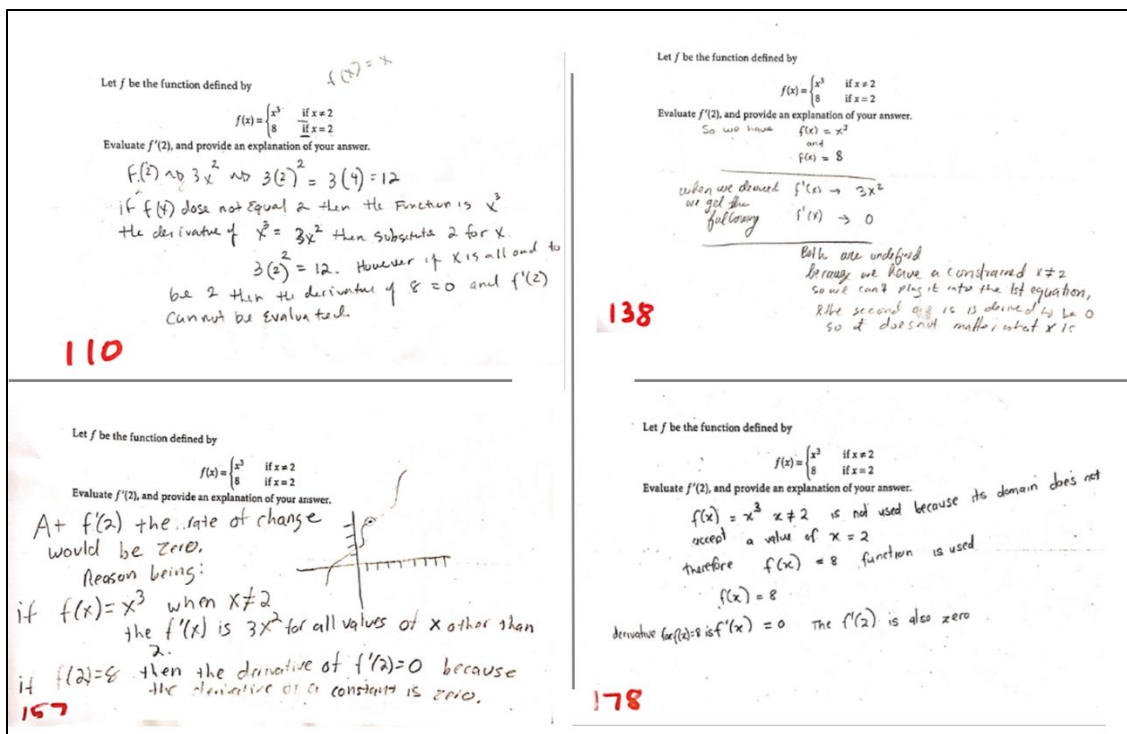 f(x) = x
Let f be the function defined by
f(x) = {x³ if x ≠ 2
8 if x = 2
Evaluate f'(2), and provide an explanation of your answer.
3x² 3(2)² = 3(4) = 12
if f(4) dose not Equal 2 then the Function is x³
the derivative of x³ = 3x² then substitute 2 for x.
3(2)² = 12. However if x is allowed to
be 2 then the derivative of 8 = 0 and f'(2)
cannot be Evaluated.
110
Let f be the function defined by
f(x) = {x³ if x ≠ 2
8 if x = 2
Evaluate f'(2), and provide an explanation of your answer.
So we have f(x) = x³
and
f(x) = 8
when we derived f'(x) → 3x²
we get the
following f'(x) → 0
Both are undefined
because we have a constrained x ≠ 2
so we can't plug it into the 1st equation,
the second is derived to be 0
so it does not matter what x is
138
Let f be the function defined by
f(x) = {x³ if x ≠ 2
8 if x = 2
Evaluate f'(2), and provide an explanation of your answer.
At f'(2) the rate of change
would be zero.
Reason being:
if f(x) = x³ when x ≠ 2
the f'(x) is 3x² for all values of x other than
2.
if f(2)=8 then the derivative of f'(2)=0 because
the derivative of a constant is zero.
157
Let f be the function defined by
f(x) = {x³ if x ≠ 2
8 if x = 2
Evaluate f'(2), and provide an explanation of your answer.
f(x) = x³ x ≠ 2 is not used because its domain does not
accept a value of x = 2
therefore f(x) = 8 function is used
f(x) = 8
derivative for f(x)=8 is f'(x) = 0 The f'(2) is also zero
178